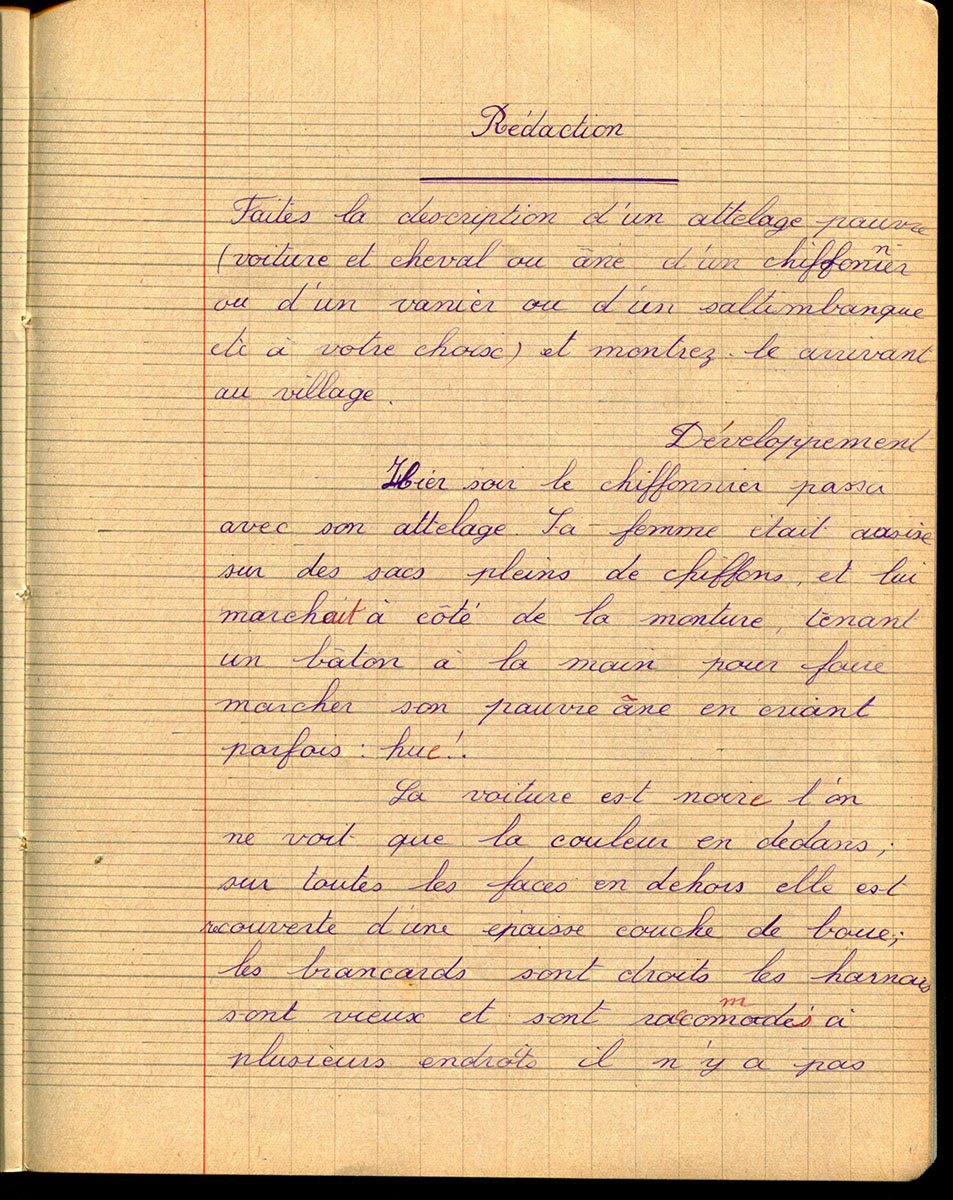 Rédaction
Faites la description d'un attelage pauvre
(voiture et cheval ou âne d'un chiffonnier
ou d'un vanier ou d'un saltimbanque
etc à votre choix) et montrez-le arrivant
au village.
Développement
Hier soir le chiffonnier passa
avec son attelage. Sa femme était assise
sur des sacs pleins de chiffons, et lui
marchait à côté de la monture, tenant
un bâton à la main pour faire
marcher son pauvre âne en criant
parfois : hue!.
La voiture est noire l'on
ne voit que la couleur en dedans;
sur toutes les faces en dehors elle est
recouverte d'une épaisse couche de boue;
les brancards sont droits les harnais
sont vieux et sont racommodés à
plusieurs endroits il n'y a pas